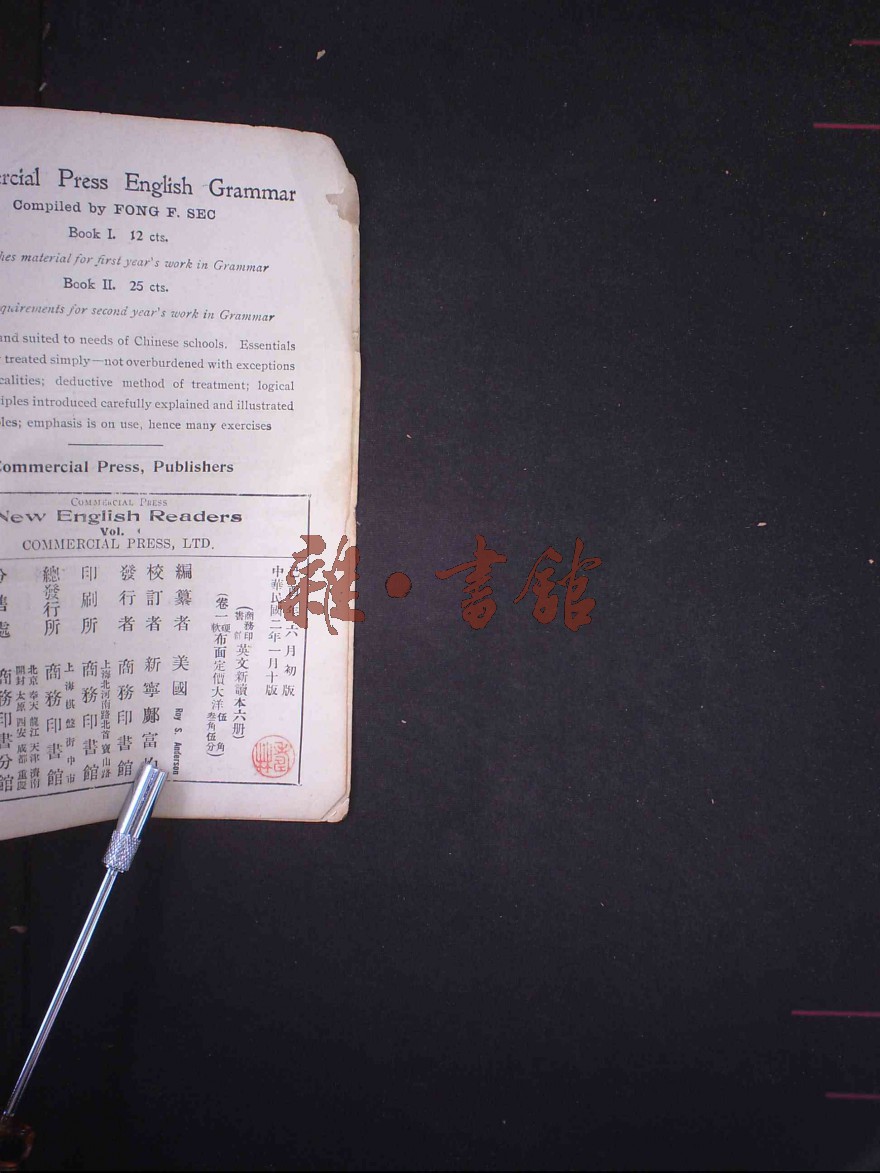 rcial Press English Grammar
Compiled by FONG F. SEC
Book I. 12 cts.
material for first year's work in Grammar
Book II. 25 cts.
for second year's work in Grammar
and suited to needs of Chinese schools. Essentials
treated simply—not overburdened with exceptions
calities; deductive method of treatment; logical
introduced carefully explained and illustrated
les; emphasis is on use, hence many exercises
Commercial Press, Publishers
COMMERCIAL PRESS
New English Readers
Vol.
COMMERCIAL PRESS, LTD.
六月初版
中華民國二年一月十版
商務印書館 英文新讀本六册
卷一 布面定價大洋 伍角 叁角伍分
編纂者 美國 Roy S. Anderson
校訂者 新寧鄺富
發行者 商務印書館
印刷所 上海北河南路北首寶山路 商務印書館
總發行所 上海棋盤街中市 商務印書館
北京 奉天 龍江 天津 濟南
開封 太原 西安 成都 重慶
商務印書分館
雜·書館